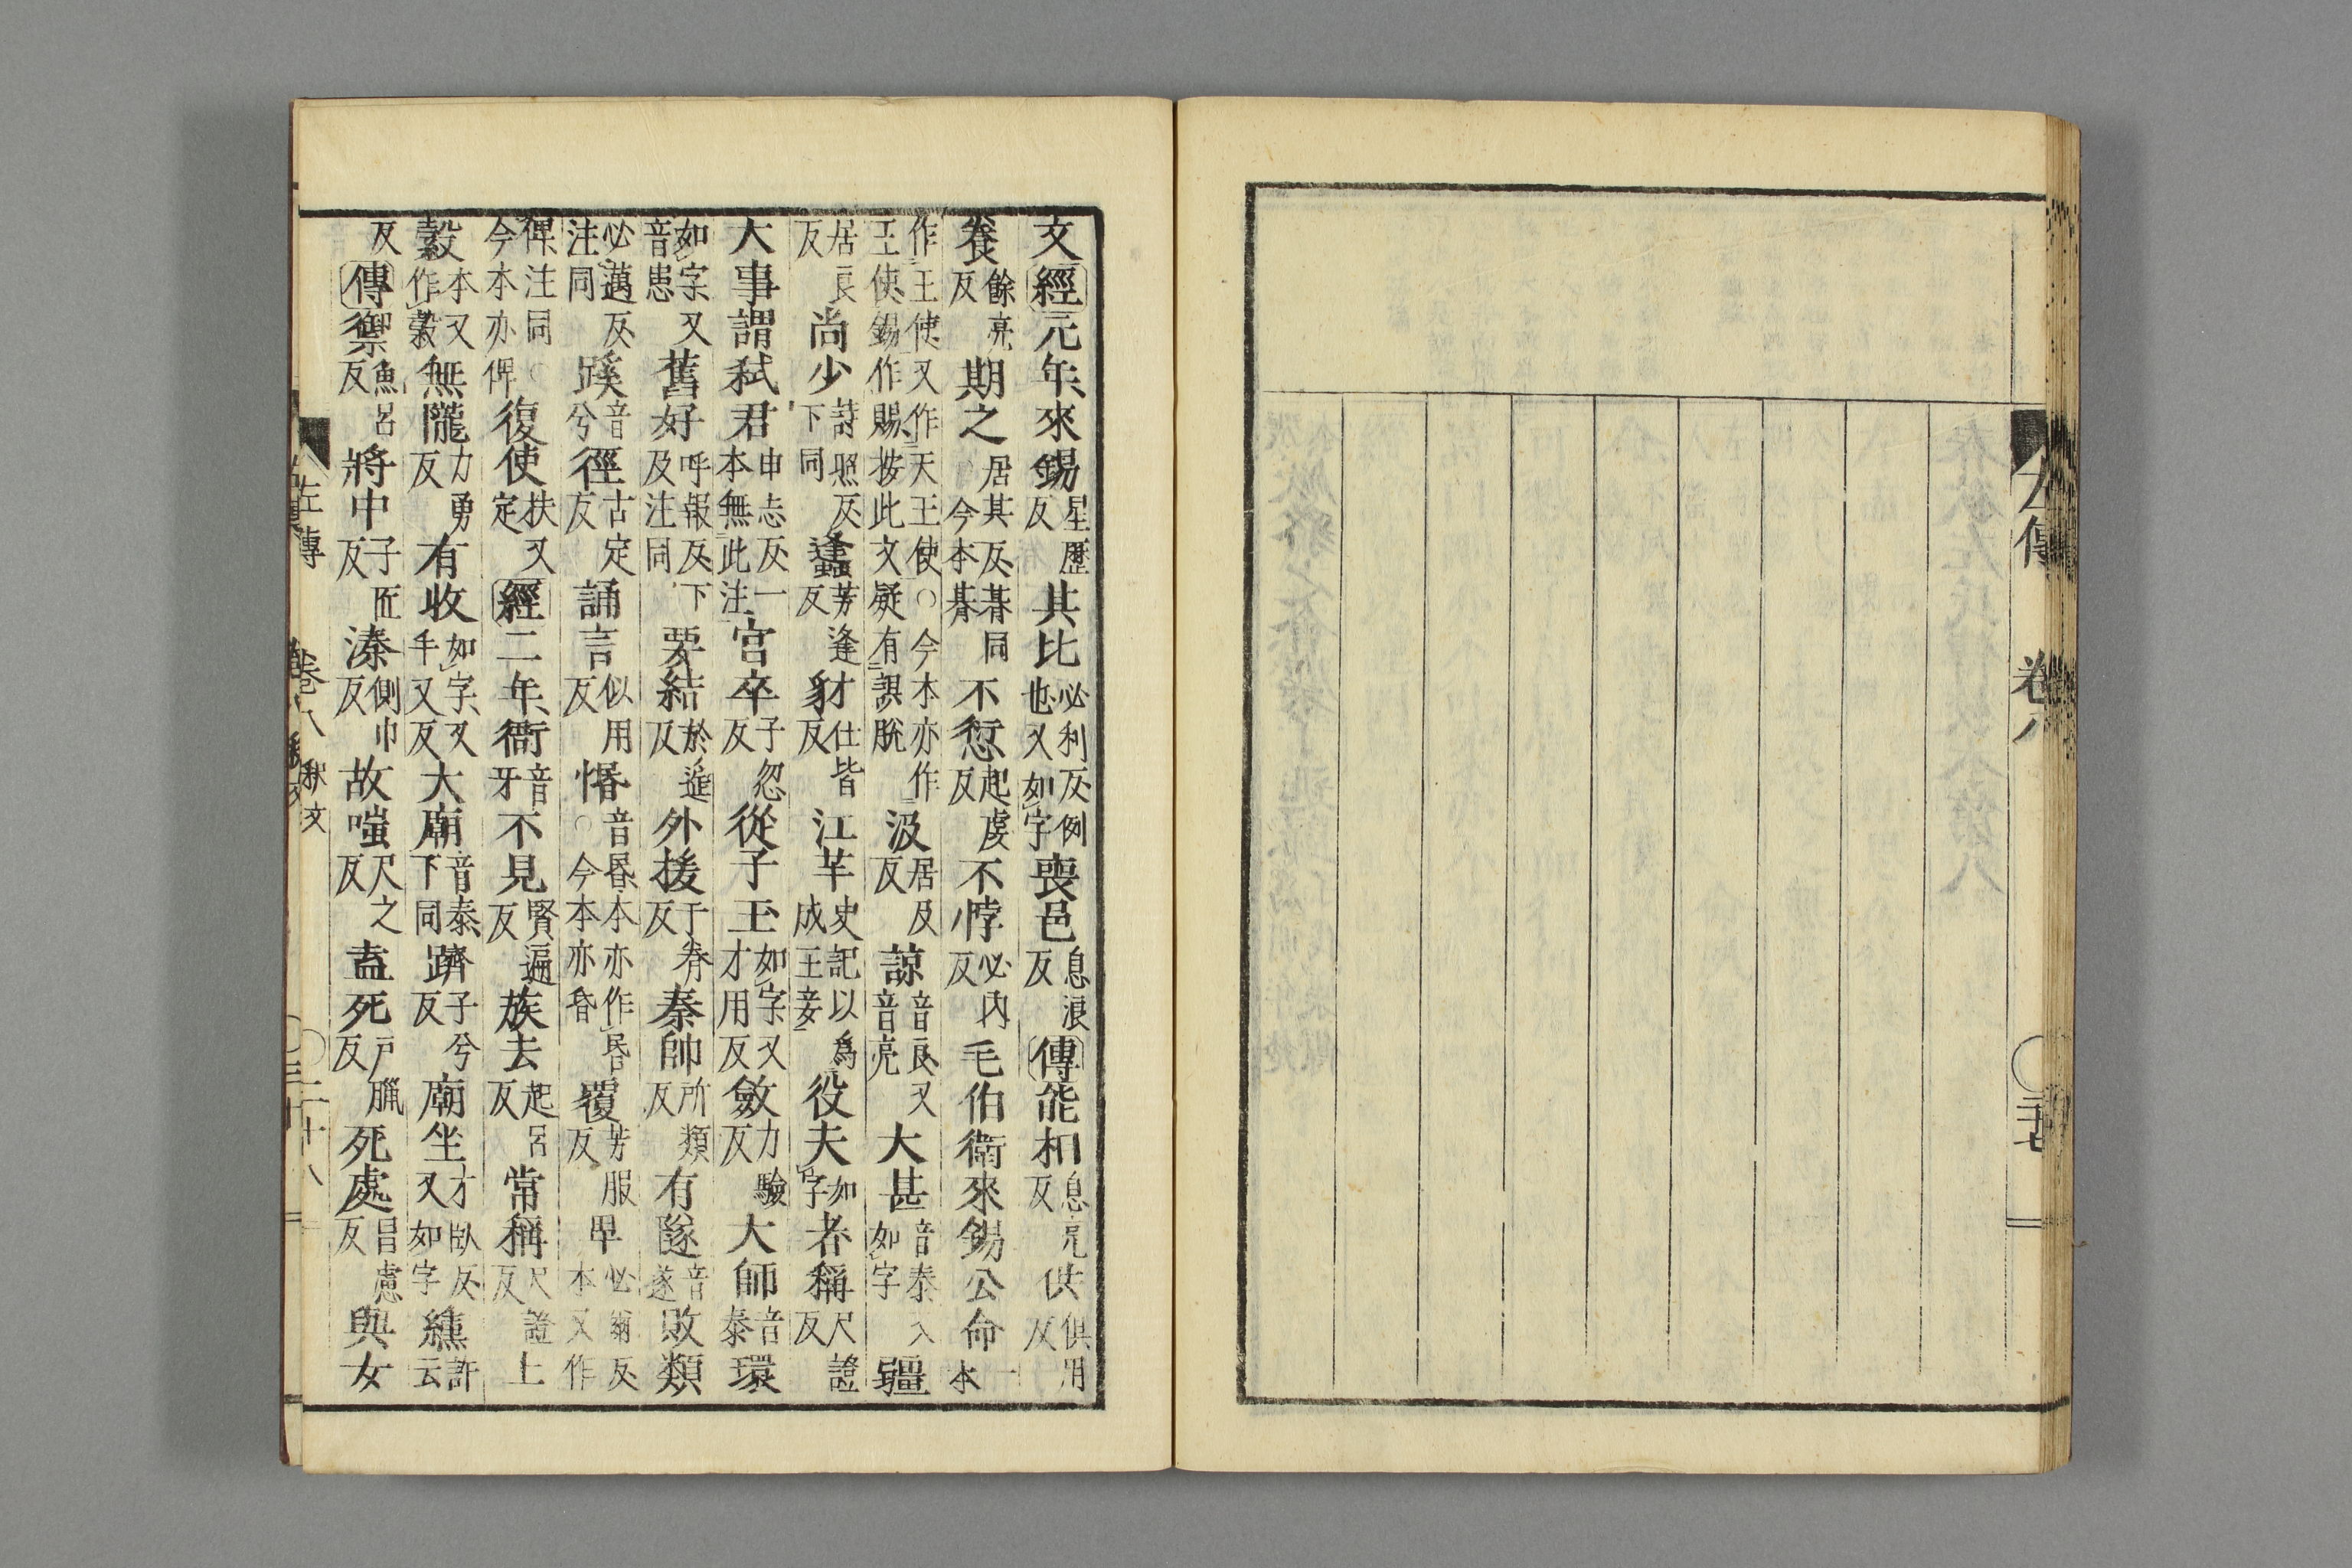 左傳　卷八　〇三十七
文經元年來錫星歷反其比必利反例也又如字喪邑息浪反傳能相息亮反供俱用反
養餘亮反期之居其反朞同今本朞不愆起虔反不悖必內反毛伯衞來錫公命一本
作王使又作天王使〇今本亦作王使錫作賜按此文疑有誤脫汲居及反諒音良又音亮大甚音泰入如字疆
居良反尚少詩照反下同蠭芳逢反豺才仕皆反江芊史記以爲成王妾役夫如字者稱尺證反
大事謂弒君申志反一本無此注宮卒子忽反從子玉如字又才用反斂力驗反大師音泰環
如字又音患舊好呼報反下及注同要結於遥反外援于眷反秦帥所類反有隧音遂敗類
必邁反注同蹊音兮徑古定反誦言似用反惛音昬本亦作昬〇今本亦昏覆芳服反卑必爾反本又作
俾注同〇今本亦俾復使扶又定經二年衙音牙不見賢遍反族去起呂反常稱尺證反上
穀本又作縠無隴力勇反有收如字又手又反大廟音泰下同躋子兮反廟坐才臥反又如字纁許云
反傳禦魚呂反將中子匠反溱側巾反故嗤尺之反盍死戶臘反死處昌慮反與女
左傳　卷八　釈文　〇二十八